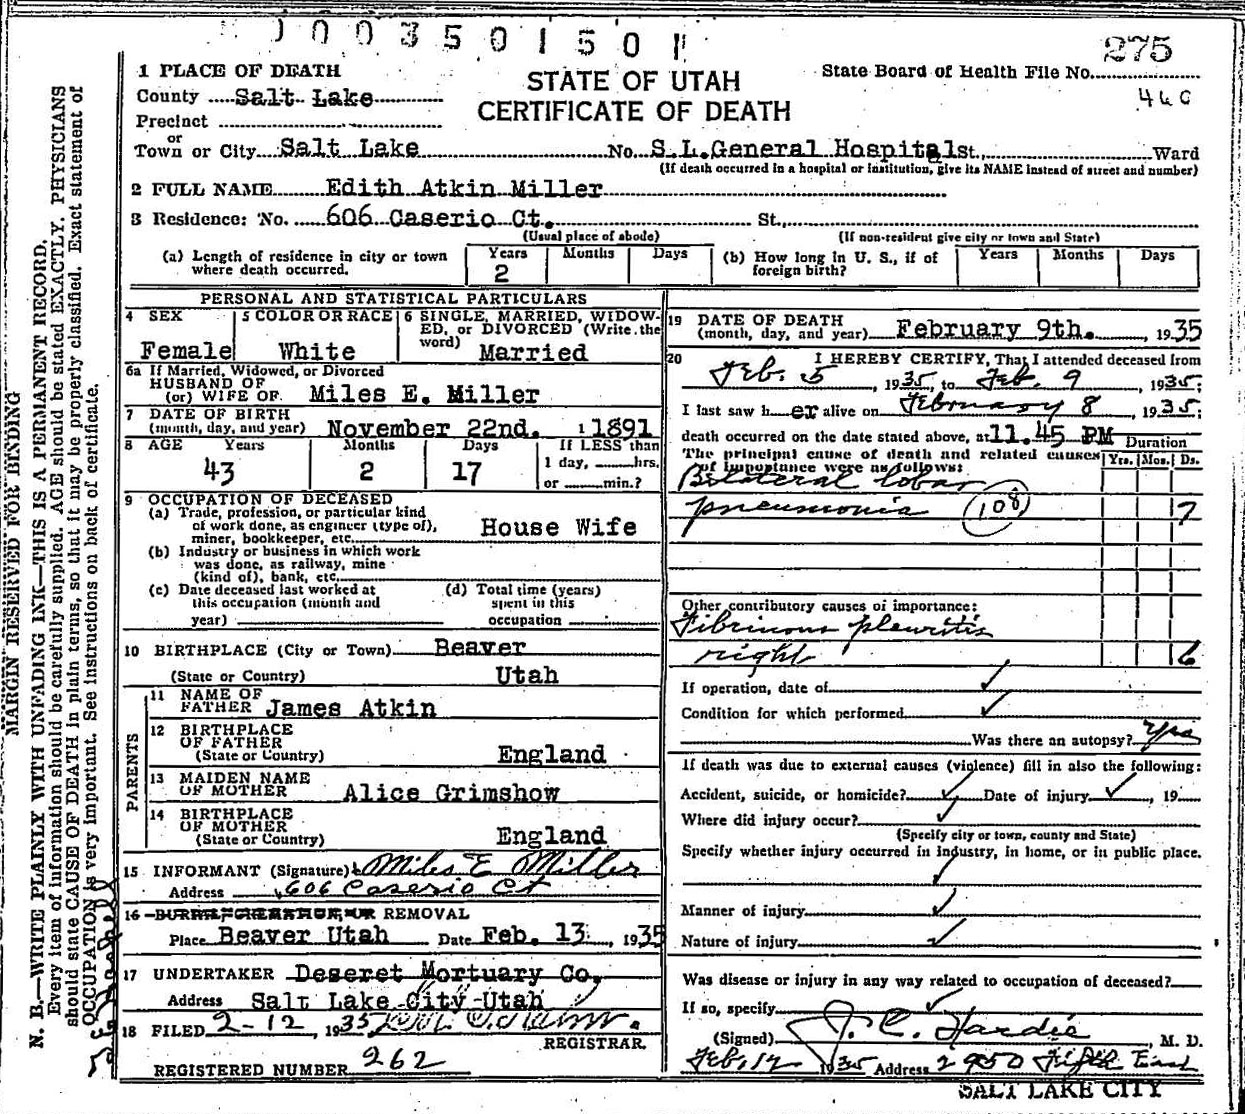 1003501501
275
1 PLACE OF DEATH
STATE OF UTAH
State Board of Health File No.
County Salt Lake
CERTIFICATE OF DEATH
460
Precinct
or
Town or City Salt Lake No. S.L.General Hospital St., Ward
(If death occurred in a hospital or institution, give its NAME instead of street and number)
2 FULL NAME Edith Atkin Miller
3 Residence: No. 606 Caserio Ct. St.,
(Usual place of abode) (If non-resident give city or town and State)
(a) Length of residence in city or town where death occurred. Years 2 Months Days
(b) How long in U. S., if of foreign birth? Years Months Days
PERSONAL AND STATISTICAL PARTICULARS
4 SEX Female
5 COLOR OR RACE White
6 SINGLE, MARRIED, WIDOWED, or DIVORCED (Write the word) Married
6a If Married, Widowed, or Divorced
HUSBAND OF
(or) WIFE OF Miles E. Miller
7 DATE OF BIRTH
(month, day, and year) November 22nd. 1 1891
8 AGE Years 43 Months 2 Days 17 If LESS than 1 day, hrs. or min.?
9 OCCUPATION OF DECEASED
(a) Trade, profession, or particular kind of work done, as engineer (type of), miner, bookkeeper, etc. House Wife
(b) Industry or business in which work was done, as railway, mine (kind of), bank, etc.
(c) Date deceased last worked at this occupation (month and year)
(d) Total time (years) spent in this occupation
10 BIRTHPLACE (City or Town) Beaver
(State or Country) Utah
PARENTS
11 NAME OF FATHER James Atkin
12 BIRTHPLACE OF FATHER
(State or Country) England
13 MAIDEN NAME OF MOTHER Alice Grimshow
14 BIRTHPLACE OF MOTHER
(State or Country) England
15 INFORMANT (Signature) Miles E Miller
Address 606 Caserio Ct
16 BURIAL, CREMATION, OR REMOVAL
Place Beaver Utah Date Feb. 13, 1935
17 UNDERTAKER Deseret Mortuary Co.
Address Salt Lake City Utah
18 FILED 2-12, 1935
REGISTRAR.
REGISTERED NUMBER 262
19 DATE OF DEATH
(month, day, and year) February 9th. 1935
20 I HEREBY CERTIFY, That I attended deceased from
Feb. 5, 1935, to Feb. 9, 1935;
I last saw h er alive on February 8, 1935;
death occurred on the date stated above, at 11.45 PM
Duration
The principal cause of death and related causes of importance were as follows: Yrs. Mos. Ds.
Bilateral lobar
pneumonia 108 7
Other contributory causes of importance:
Fibrinous pleuritis
right 6
If operation, date of
Condition for which performed
Was there an autopsy? Yes
If death was due to external causes (violence) fill in also the following:
Accident, suicide, or homicide? Date of injury, 19
Where did injury occur?
(Specify city or town, county and State)
Specify whether injury occurred in industry, in home, or in public place.
Manner of injury
Nature of injury
Was disease or injury in any way related to occupation of deceased?
If so, specify
(Signed) J. C. Hardie, M. D.
Feb. 12 1935 Address 2950 Fifth East
SALT LAKE CITY
MARGIN RESERVED FOR BINDING
N. B.—WRITE PLAINLY WITH UNFADING INK—THIS IS A PERMANENT RECORD.
Every item of information should be carefully supplied. AGE should be stated EXACTLY. PHYSICIANS
should state CAUSE OF DEATH in plain terms, so that it may be properly classified. Exact statement of
OCCUPATION is very important. See instructions on back of certificate.